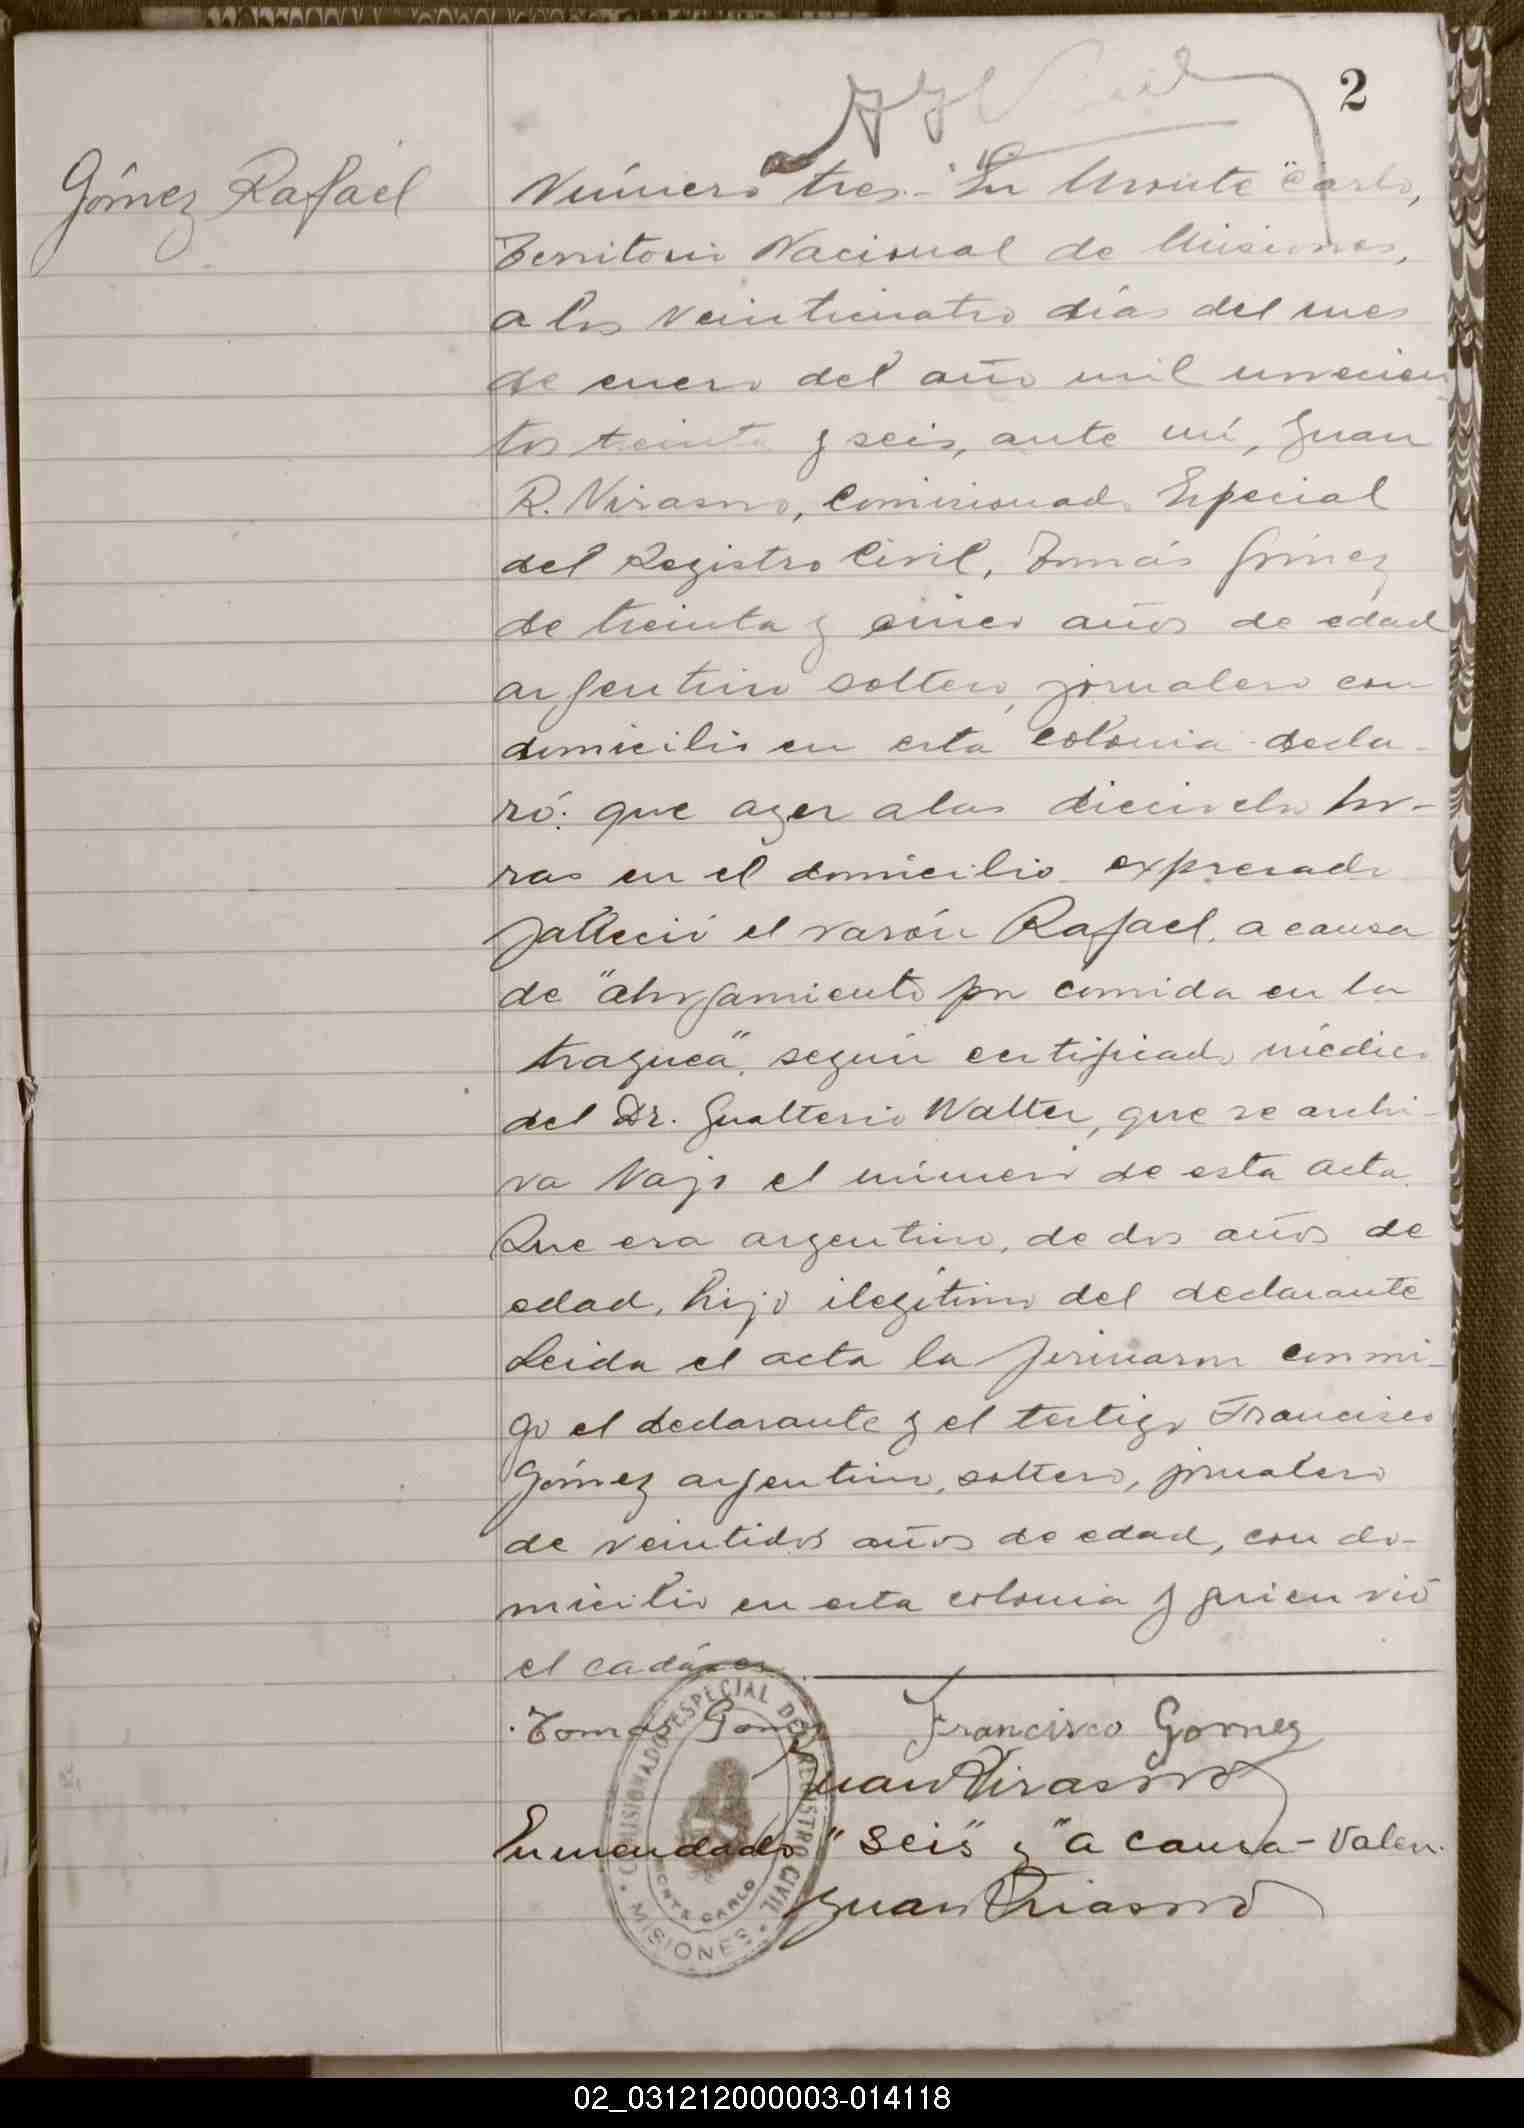 2
Gómez Rafael
Número tres.- En Monte Carlo,
Territorio Nacional de Misiones,
a los veinticuatro días del mes
de enero del año mil novecien
tos treinta y seis, ante mí, Juan
R. Virasoro, Comisionado Especial
del Registro Civil, Tomás Gómez
de treinta y cinco años de edad
argentino soltero, jornalero con
domicilio en esta colonia decla-
ró: que ayer a las dieciocho ho-
ras en el domicilio expresado
falleció el varón Rafael, a causa
de "ahogamiento por comida en la
traquea", según certificado médico
del Dr. Gualterio Walter, que se archi-
va bajo el número de esta acta.
Que era argentino, de dos años de
edad, hijo ilegítimo del declarante
Leida el acta la firmaron conmi-
go el declarante y el testigo Francisco
Gómez argentino, soltero, jornalero
de veintidos años de edad, con do-
micilio en esta colonia y quien vió
el cadáver.
Tomás Gomez Francisco Gomez
Juan Virasoro
Enmendado "seis" y "a causa - Valen.
Juan Virasoro
COMISIONADO ESPECIAL DEL REGISTRO CIVIL
MONTE CARLO
MISIONES
02_031212000003-014118